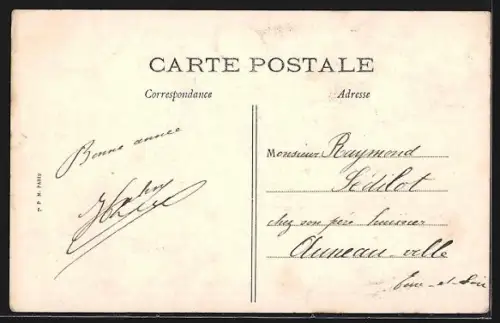 CARTE POSTALE
Correspondance
Adresse
Bonne année
Monsieur Raymond
Sédilot
chez son père huissier
Auneau-ville
Eure-et-Loir